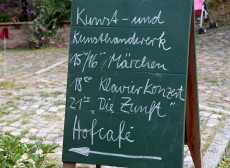 Kunst- und
Kunsthandwerk
15°°/16°° Märchen
18°° Klavierkonzert
21°° "Die Zunft"
Hofcafé